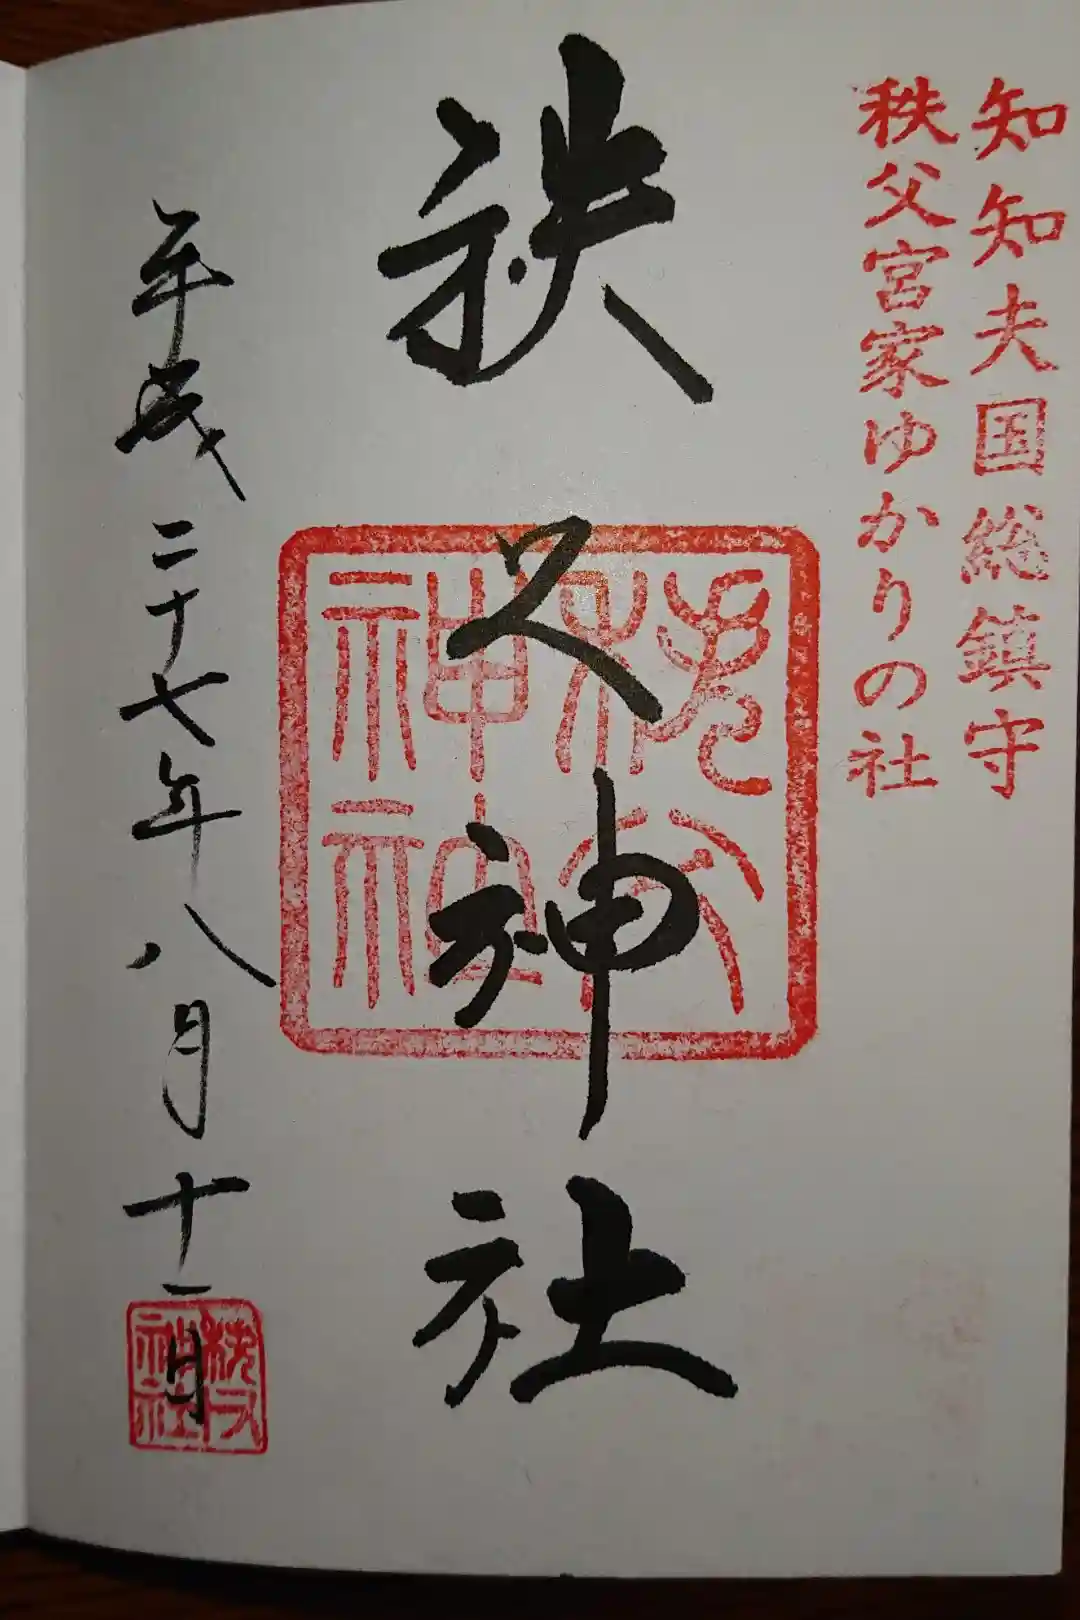 知知夫国総鎮守
秩父宮家ゆかりの社
秩父神社
秩父神社
平成二十七年八月十一日
秩父神社